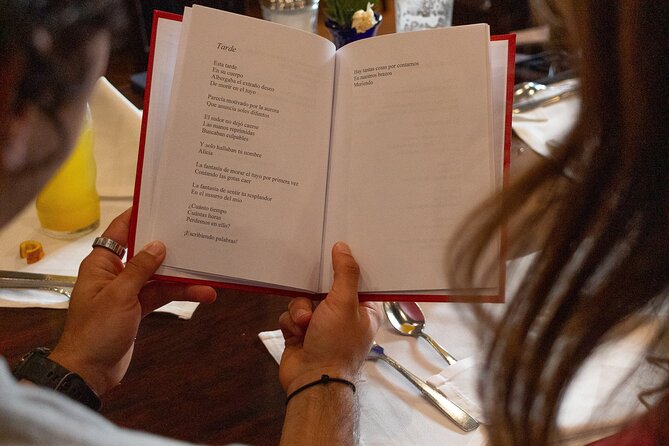 Tarde
Esta tarde
En su cuerpo
Albergaba el extraño deseo
De morir en el tuyo
Parecía motivado por la aurora
Que anuncia soles difuntos
El sudor no dejó caerse
Las manos reprimidas
Buscaban culpables
Y solo hallaban tu nombre
Alicia
La fantasía de morar el tuyo por primera vez
Contando las gotas caer
La fantasía de sentir tu resplandor
En el susurro del mío
¿Cuánto tiempo
Cuántas horas
Perdemos en ello?
¡Escribiendo palabras!
Hay tantas cosas por contarnos
En nuestros brazos
Muriendo